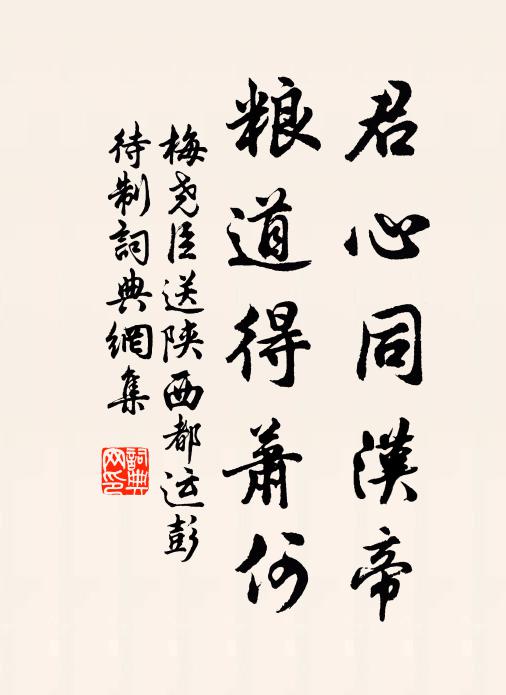 君心同漢帝
粮道得蕭何
梅尧臣送陕西都运彭
待制詞典網集
詞典网印